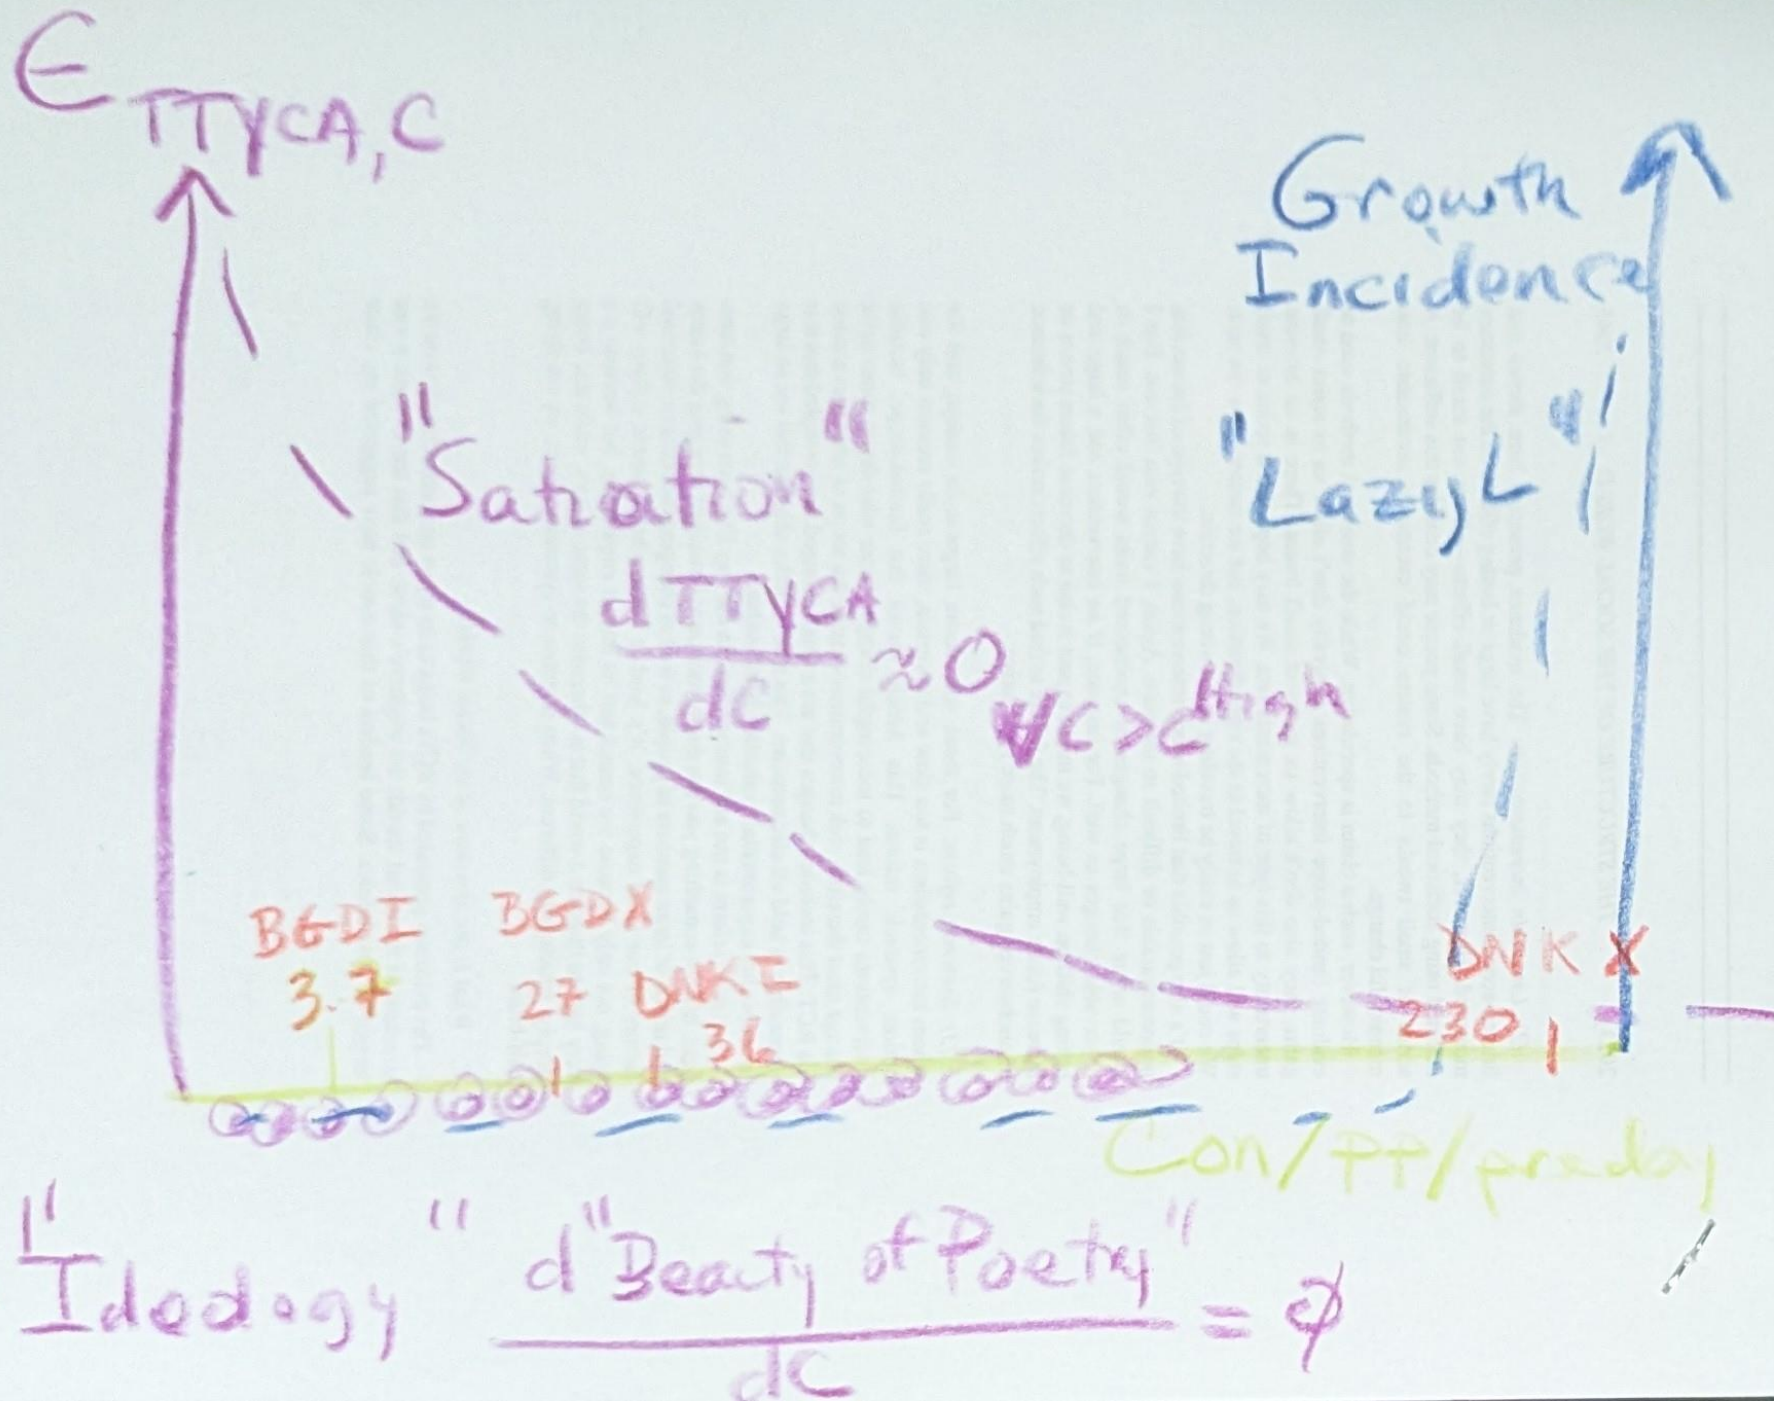 ЄTTYCA,C
Growth
Incidence
"Satiation"
"Lazy L"
dTTYCA
dC
≈0
∀C>C^High
BGDI
3.7
BGDX
27
DNKI
36
DNKX
230
Con/PP/preday
"Ideology"
d"Beauty of Poetry"
dC
= ϕ